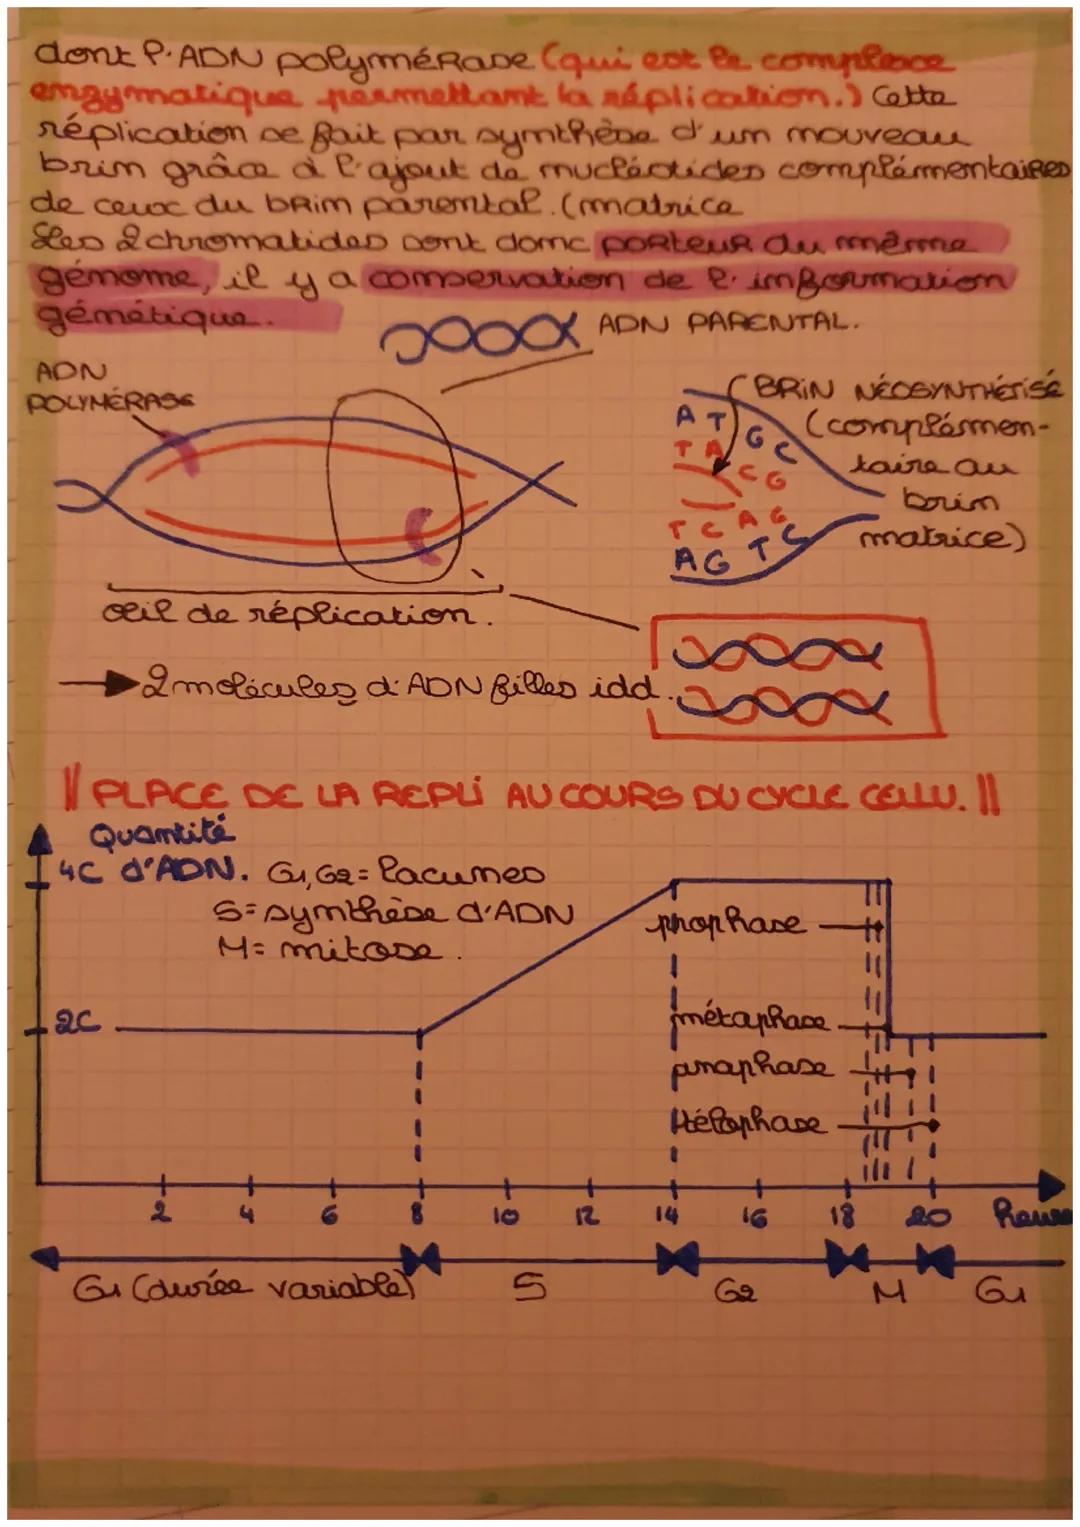 dont l'ADN polymérase (qui est le complexe
enzymatique permettant la réplication.) Cette
réplication se fait par synthèse d'un nouveau
brin grâce à l'ajout de nucléotides complémentaires
de ceux du brin parental. (matrice
Les 2 chromatides sont donc porteur du même
génome, il y a conservation de l'information
génétique.
ADN PARENTAL.
ADN
POLYMÉRASE
BRIN NÉOSYNTHÉTISÉ
(complémen-
taire au
brin
matrice)
A T G C
T A C G
T C A G
A G T C
oeil de réplication.
2 molécules d'ADN filles idd.
|| PLACE DE LA REPLI AU COURS DU CYCLE CELLU. ||
Quantité
4C d'ADN. G1, G2 = lacunes
S = synthèse d'ADN
M = mitose.
prophase
métaphase
anaphase
télophase
2C
2 4 6 8 10 12 14 16 18 20 heures
G1 (durée variable) S G2 M G1